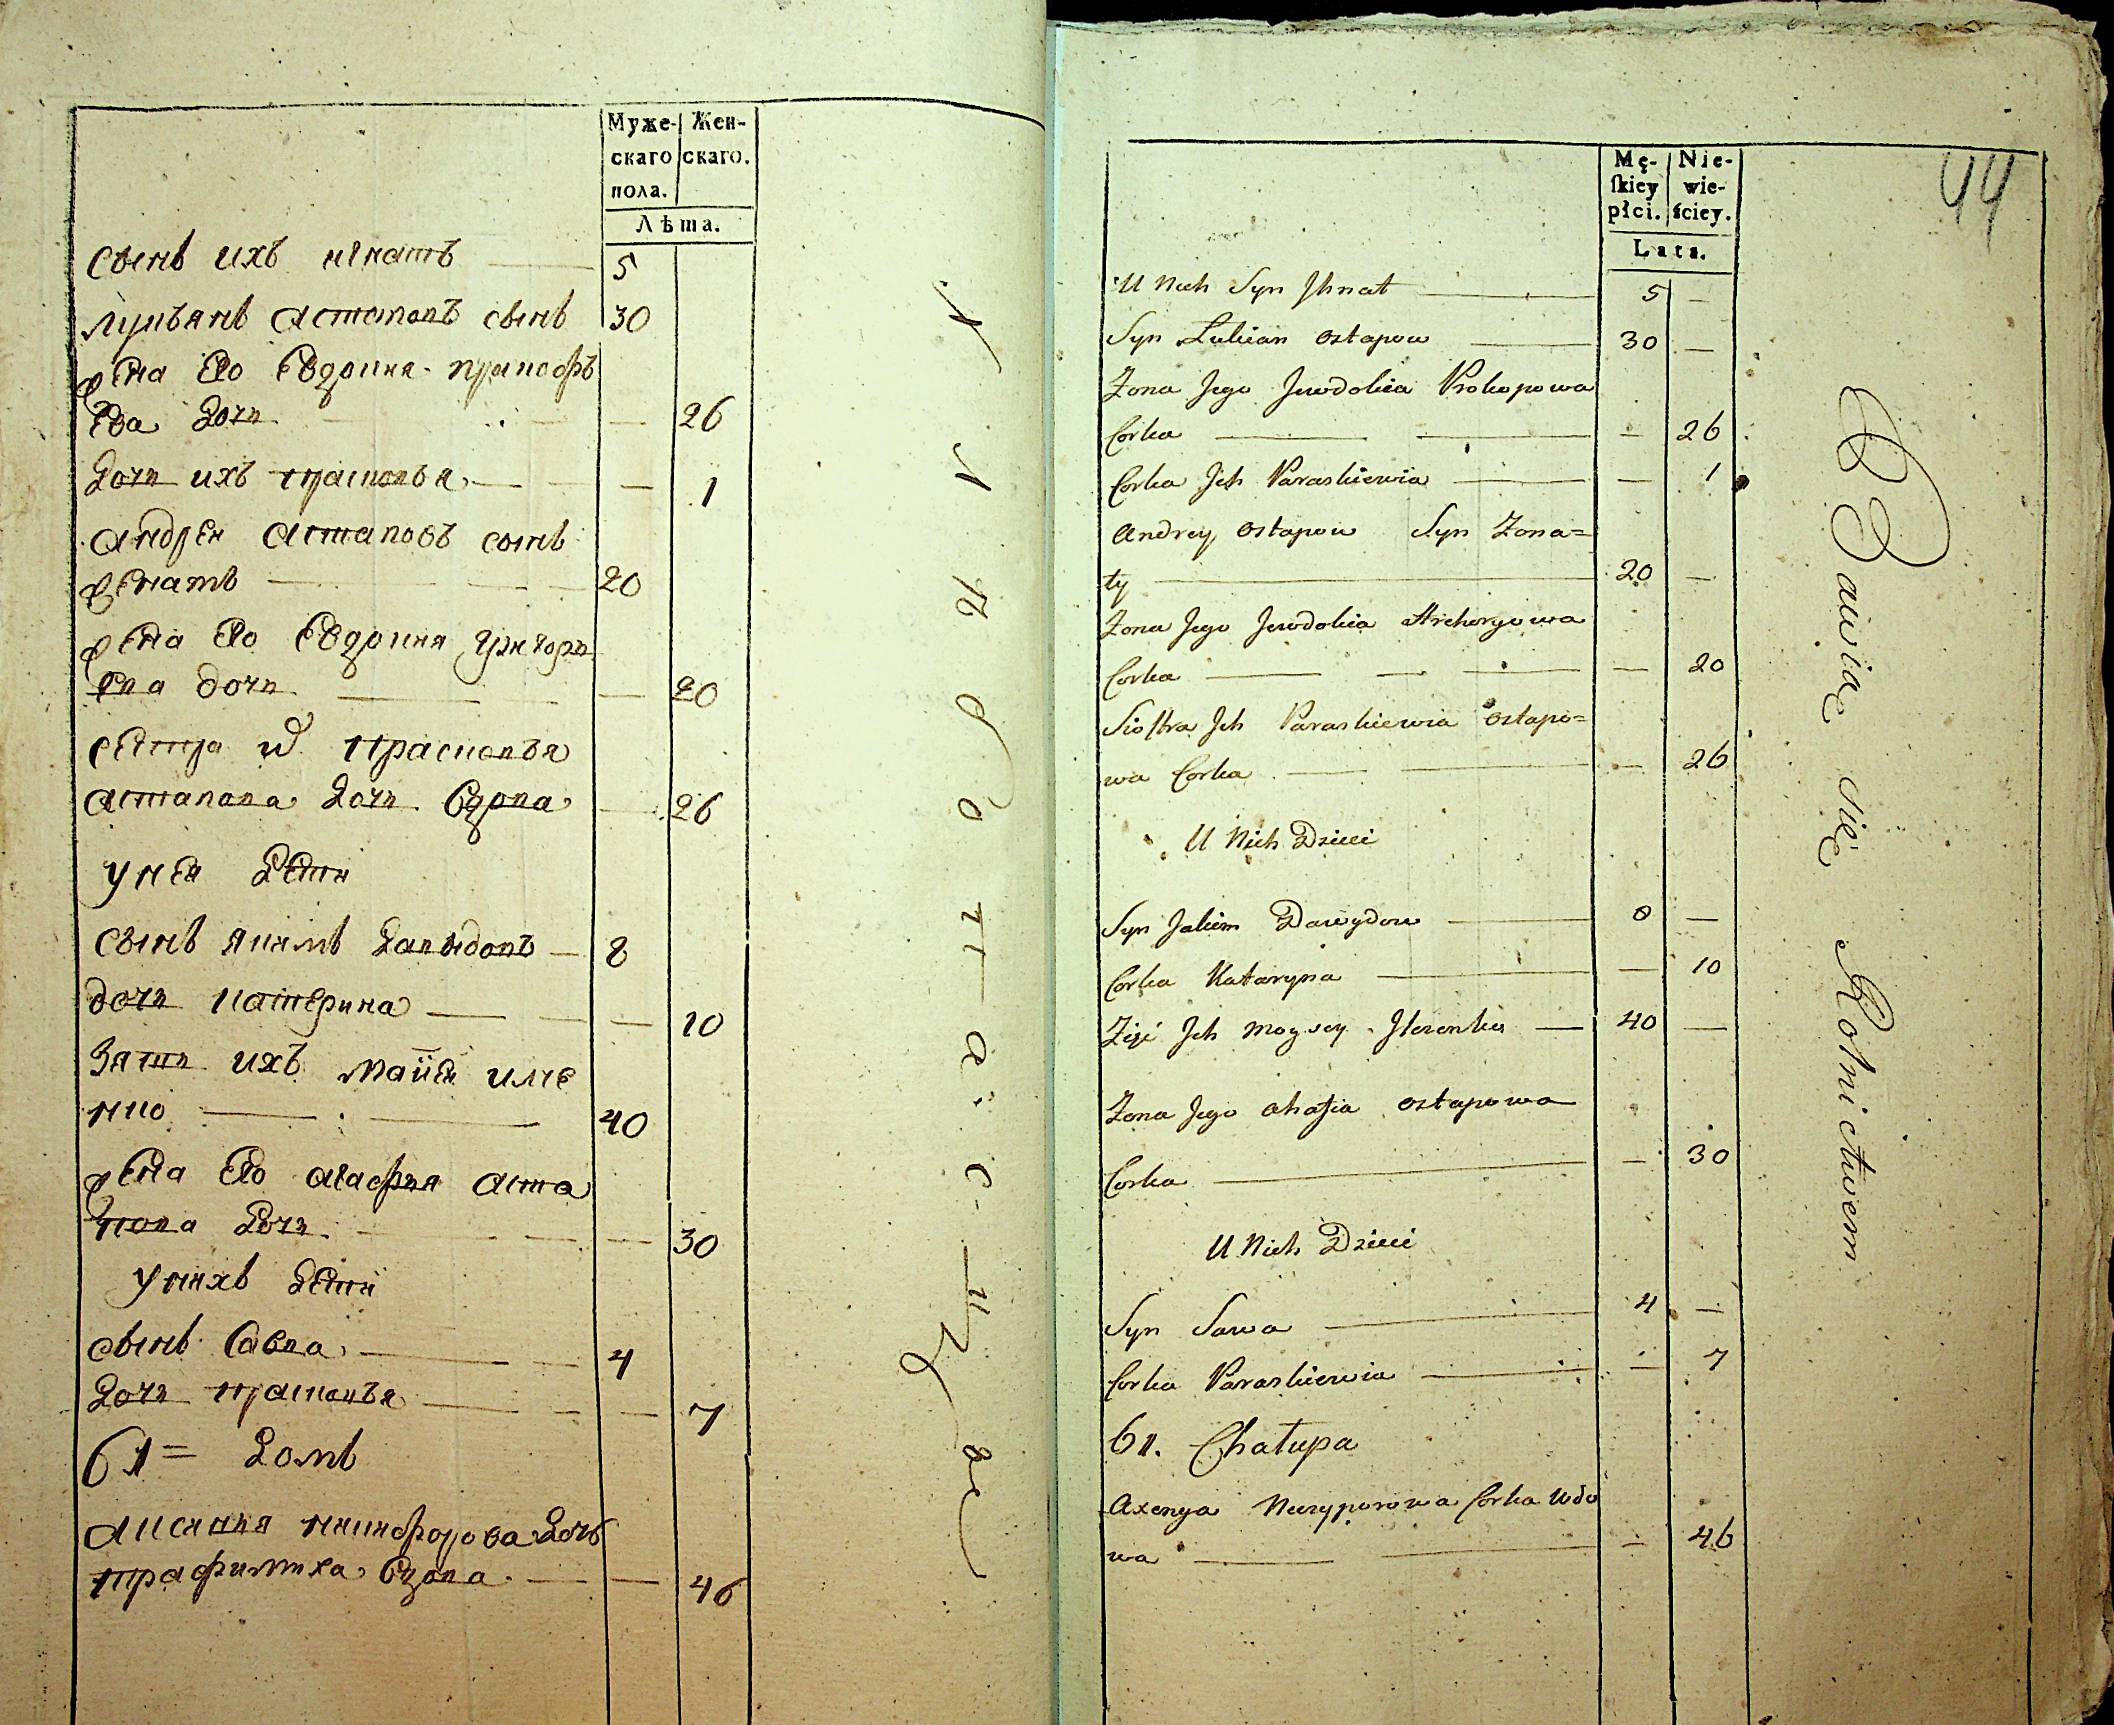 Муже-
скаго
пола.
Жен-
скаго.
Лѣта.
сынъ ихъ игнатъ 5
лукьянъ астаповъ сынъ 30
жена его евдокия прокофь
ева дочь — 26
дочь ихъ прасковья — 1
андрей астаповъ сынъ
женатъ 20
жена его евдокия григорь
ева дочь — 20
сестра прасковья
астапова дочь вдова — 26
у ней дети
сынъ якимъ давыдовъ — 8
дочь катерина — 10
зять ихъ
нко 40
жена его агафия аста
пова дочь — 30
у нихъ дети
сынъ савва 4
дочь прасковья — 7
61= домъ
аксиния никифорова дочь
трафимиха вдова — 46
44
Mę-
ſkiey
płci.
Nie-
wie-
ściey.
Lata.
U Nich Syn Jhnat — 5 —
Syn Lukian Ostapow — 30 —
Zona Jego Jewdokia Prokopowa
Corka — — 26
Corka Jch Paraskiewia — — 1
Andrey Ostapow Syn Zona=
ty — 20 —
Zona Jego Jewdokia Hrehorgowa
Corka — — 20
Siostra Jch Paraskiewia Ostapo=
wa Corka — — 26
U Nich Dzieci
Syn Jakim Dawydow — 8 —
Corka Kataryna — — 10
Zięć Jch Moysey — 40 —
Zona Jego Ahafia Ostapowa
Corka — — 30
U Nich Dzieci
Syn Sawa — 4 —
Corka Paraskiewia — — 7
61. Chałupa
Axenya Neczyporowa Corka Wdo
wa — — 46
Bawią się Rolnictwem